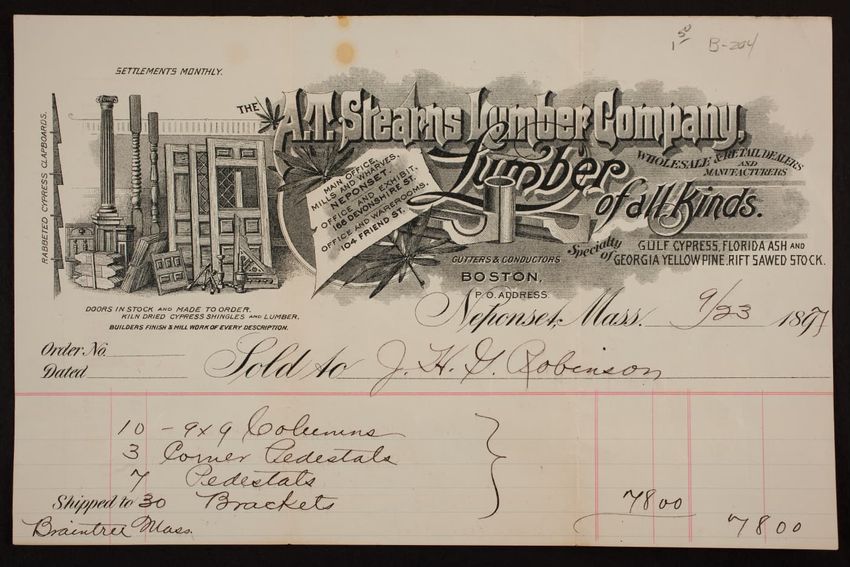 1 50 B-204
SETTLEMENTS MONTHLY.
RABBETED CYPRESS CLAPBOARDS.
THE A.T. Stearns Lumber Company,
WHOLESALE & RETAIL DEALERS
AND
MANUFACTURERS
Lumber
of all Kinds.
MAIN OFFICE,
MILLS AND WHARVES,
NEPONSET.
OFFICE AND EXHIBIT,
166 DEVONSHIRE ST.
OFFICE AND WAREROOMS,
104 FRIEND ST.
GUTTERS & CONDUCTORS
Specialty of GULF CYPRESS, FLORIDA ASH AND
GEORGIA YELLOW PINE, RIFT SAWED STOCK.
BOSTON,
P.O. ADDRESS
DOORS IN STOCK AND MADE TO ORDER.
KILN DRIED CYPRESS SHINGLES AND LUMBER.
BUILDERS FINISH & MILL WORK OF EVERY DESCRIPTION.
Neponset, Mass. 9/23 1897
Order No.
Dated
Sold to J. H. G. Robinson
10 - 9x9 Columns
3 Corner Pedestals
7 Pedestals
Shipped to 30 Brackets 78 00
Braintree Mass. 78 00